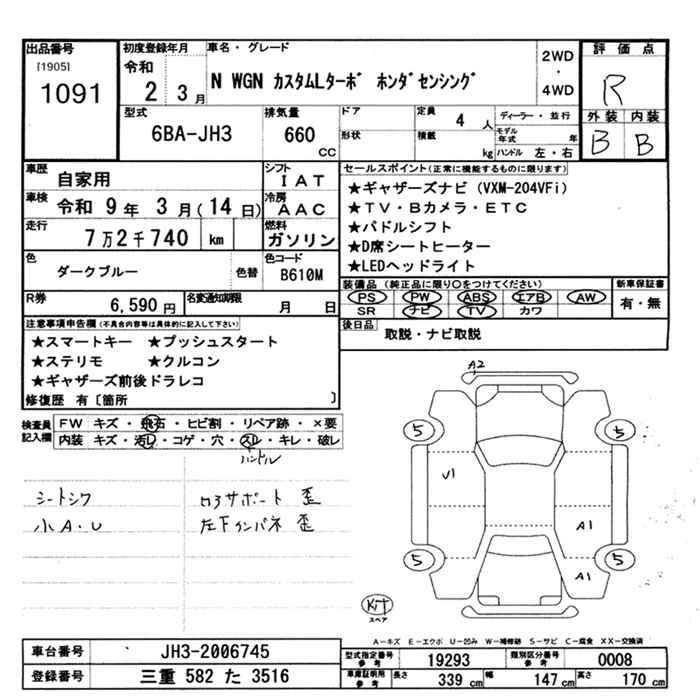 出品番号
[1905]
1091
初度登録年月
令和
2 3月
車名・グレード
N WGN カスタムLターボ ホンダセンシング
2WD
・
4WD
評価点
R
外装 内装
B B
型式
6BA-JH3
排気量
660
CC
ドア
形状
定員
4 人
積載
kg
ディーラー・並行
モデル年式 年
ハンドル 左・右
車歴
自家用
シフト
IAT
車検
令和 9年 3月(14日)
冷房
AAC
走行
7万2千740 km
燃料
ガソリン
色
ダークブルー
色替
色コード
B610M
R券
6,590 円
名変通知期限
月 日
セールスポイント(正常に機能するものに限ります)
★ギャザーズナビ(VXM-204VFi)
★TV・Bカメラ・ETC
★パドルシフト
★D席シートヒーター
★LEDヘッドライト
装備品(純正品に限り○をつけてください)
PS PW ABS エアB AW
SR ナビ TV カワ
新車保証書
有・無
後日品
取説・ナビ取説
注意事項申告欄(不具合内容等は具体的に記入して下さい)
★スマートキー ★プッシュスタート
★ステリモ ★クルコン
★ギャザーズ前後ドラレコ
修復歴 有〔箇所 〕
検査員記入欄
FW キズ・飛石・ヒビ割・リペア跡・×要
内装 キズ・汚レ・コゲ・穴・スレ・キレ・破レ
ハンドル
シートシワ
小A・U
ロアサポート 歪
左下インパネ 歪
A2
5
5
V1
A1
5
5
A1
Kit
スペア
A-キズ E-エクボ U-凹み W-補修跡 S-サビ C-腐食 XX-交換済
車台番号
JH3-2006745
登録番号
三重 582 た 3516
型式指定番号
参考
19293
類別区分番号
参考
0008
車庫証明用
参考
長さ 339 cm 幅 147 cm 高さ 170 cm